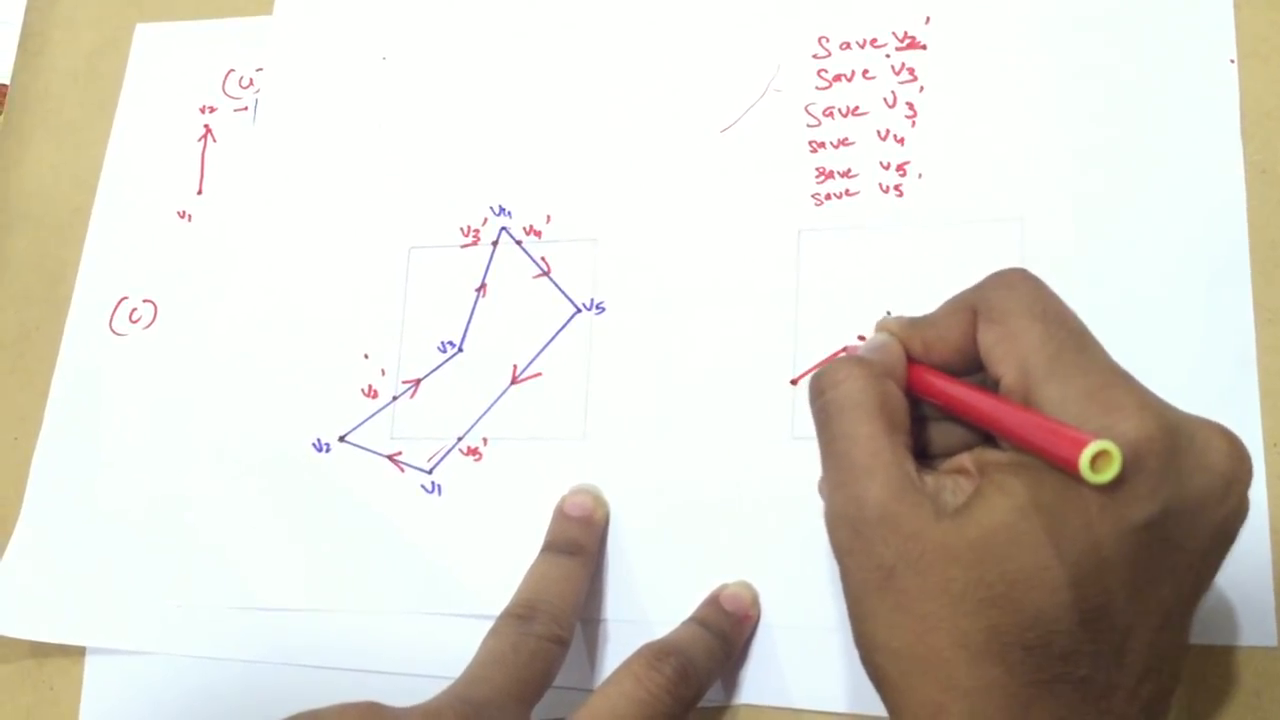 Save v2'
Save v3
Save v3'
save v4'
save v5'
save v5
v2
v1
(c)
v4
v3'
v4'
v5
v3
v2'
v2
v5'
v1